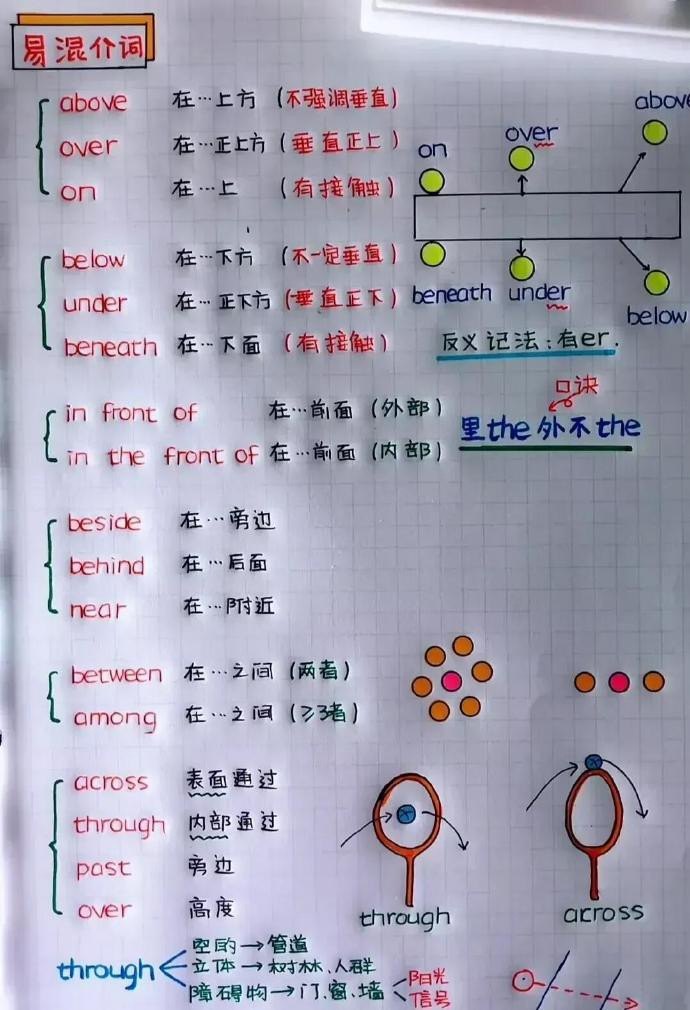 易混介词
above 在…上方 (不强调垂直)
over 在…正上方 (垂直正上)
on 在…上 (有接触)
on
over
above
below 在…下方 (不一定垂直)
under 在…正下方 (垂直正下)
beneath 在…下面 (有接触)
beneath
under
below
反义记法:有er.
in front of 在…前面 (外部)
in the front of 在…前面 (内部)
口诀
里the外不the
beside 在…旁边
behind 在…后面
near 在…附近
between 在…之间 (两者)
among 在…之间 (≥3者)
across 表面通过
through 内部通过
past 旁边
over 高度
through
across
through
空的→管道
立体→树林、人群
障碍物→门、窗、墙
阳光
信号